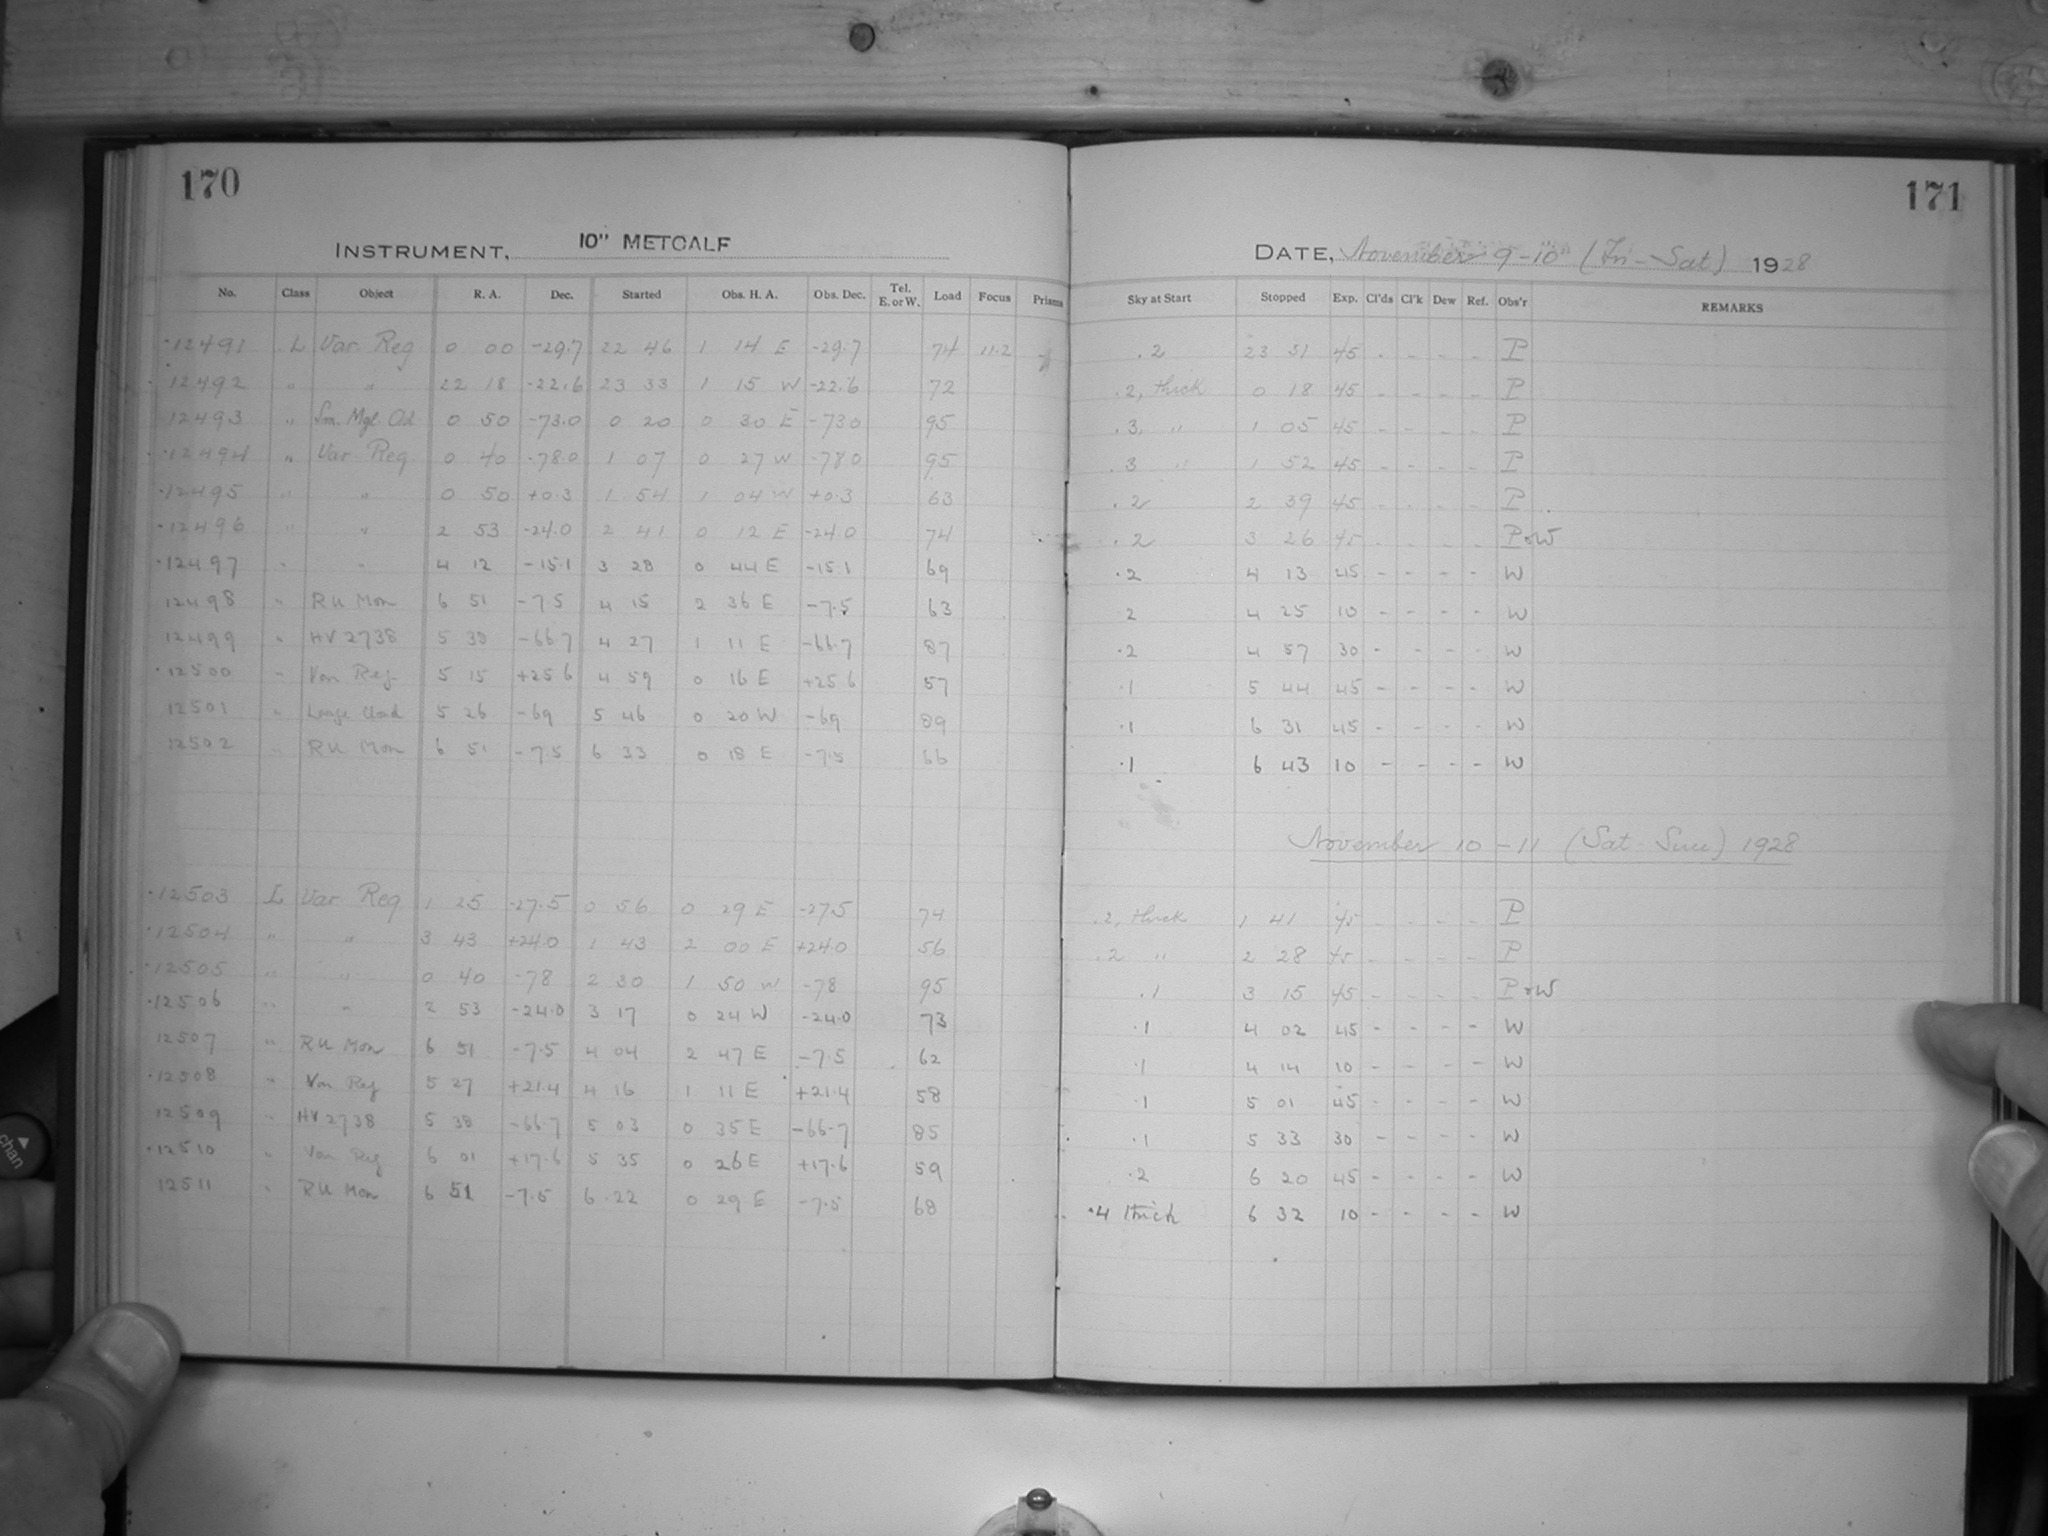 170
INSTRUMENT, 10" METCALF
No. Class Object R. A. Dec. Started Obs. H. A. Obs. Dec. Tel. E. or W. Load Focus Prisms
12491 L Var. Reg 0 00 -29.7 22 46 1 14 E -29.7 74 11.2
12492 " " 22 18 -22.6 23 33 1 15 W -22.6 72
12493 " Sm. Mgl. Cld. 0 50 -73.0 0 20 0 30 E -73.0 95
12494 " Var Reg 0 40 -78.0 1 07 0 27 W -78.0 95
12495 " " 0 50 +0.3 1 54 1 04 W +0.3 63
12496 " " 2 53 -24.0 2 41 0 12 E -24.0 74
12497 " " 4 12 -15.1 3 28 0 44 E -15.1 69
12498 " RU Mon 6 51 -7.5 4 15 2 36 E -7.5 63
12499 " HV 2738 5 38 -66.7 4 27 1 11 E -66.7 87
12500 " Var Reg 5 15 +25.6 4 59 0 16 E +25.6 57
12501 " Large Cloud 5 26 -69 5 46 0 20 W -69 89
12502 " RU Mon 6 51 -7.5 6 33 0 18 E -7.5 66
12503 L Var Reg 1 25 -27.5 0 56 0 29 E -27.5 74
12504 " " 3 43 +24.0 1 43 2 00 E +24.0 56
12505 " " 0 40 -78 2 30 1 50 W -78 95
12506 " " 2 53 -24.0 3 17 0 24 W -24.0 73
12507 " RU Mon 6 51 -7.5 4 04 2 47 E -7.5 62
12508 " Var Reg 5 27 +21.4 4 16 1 11 E +21.4 58
12509 " HV 2738 5 38 -66.7 5 03 0 35 E -66.7 85
12510 " Var Reg 6 01 +17.6 5 35 0 26 E +17.6 59
12511 " RU Mon 6 51 -7.5 6 22 0 29 E -7.5 68
171
DATE, November 9-10 (Fri-Sat) 1928
Sky at Start Stopped Exp. Cl'ds Cl'k Dew Ref. Obs'r REMARKS
.2 23 31 45 - - - - P
.2, thick 0 18 45 - - - - P
.3, " 1 05 45 - - - - P
.3 " 1 52 45 - - - - P
.2 2 39 45 - - - - P
.2 3 26 45 - - - - P & W
.2 4 13 45 - - - - W
.2 4 25 10 - - - - W
.2 4 57 30 - - - - W
.1 5 44 45 - - - - W
.1 6 31 45 - - - - W
.1 6 43 10 - - - - W
November 10-11 (Sat-Sun) 1928
.2, thick 1 41 45 - - - - P
.2 " 2 28 45 - - - - P
.1 3 15 45 - - - - P & W
.1 4 02 45 - - - - W
.1 4 14 10 - - - - W
.1 5 01 45 - - - - W
.1 5 33 30 - - - - W
.2 6 20 45 - - - - W
.4 thick 6 32 10 - - - - W